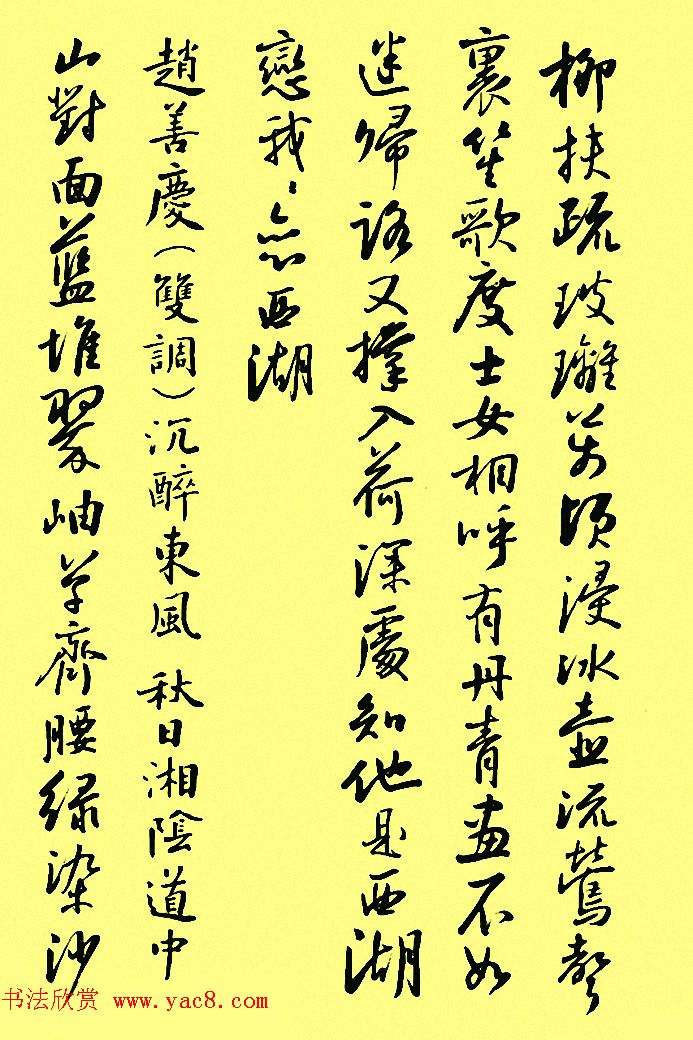 柳扶疏玻璃萬頃浸冰壺流鶯聲
裏笙歌度士女相呼有丹青畫不如
迷歸路又撑入荷深處知他是西湖
戀我我戀西湖
趙善慶(雙調)沉醉東風 秋日湘陰道中
山對面藍堆翠岫草齊腰綠染沙
书法欣赏 www.yac8.com